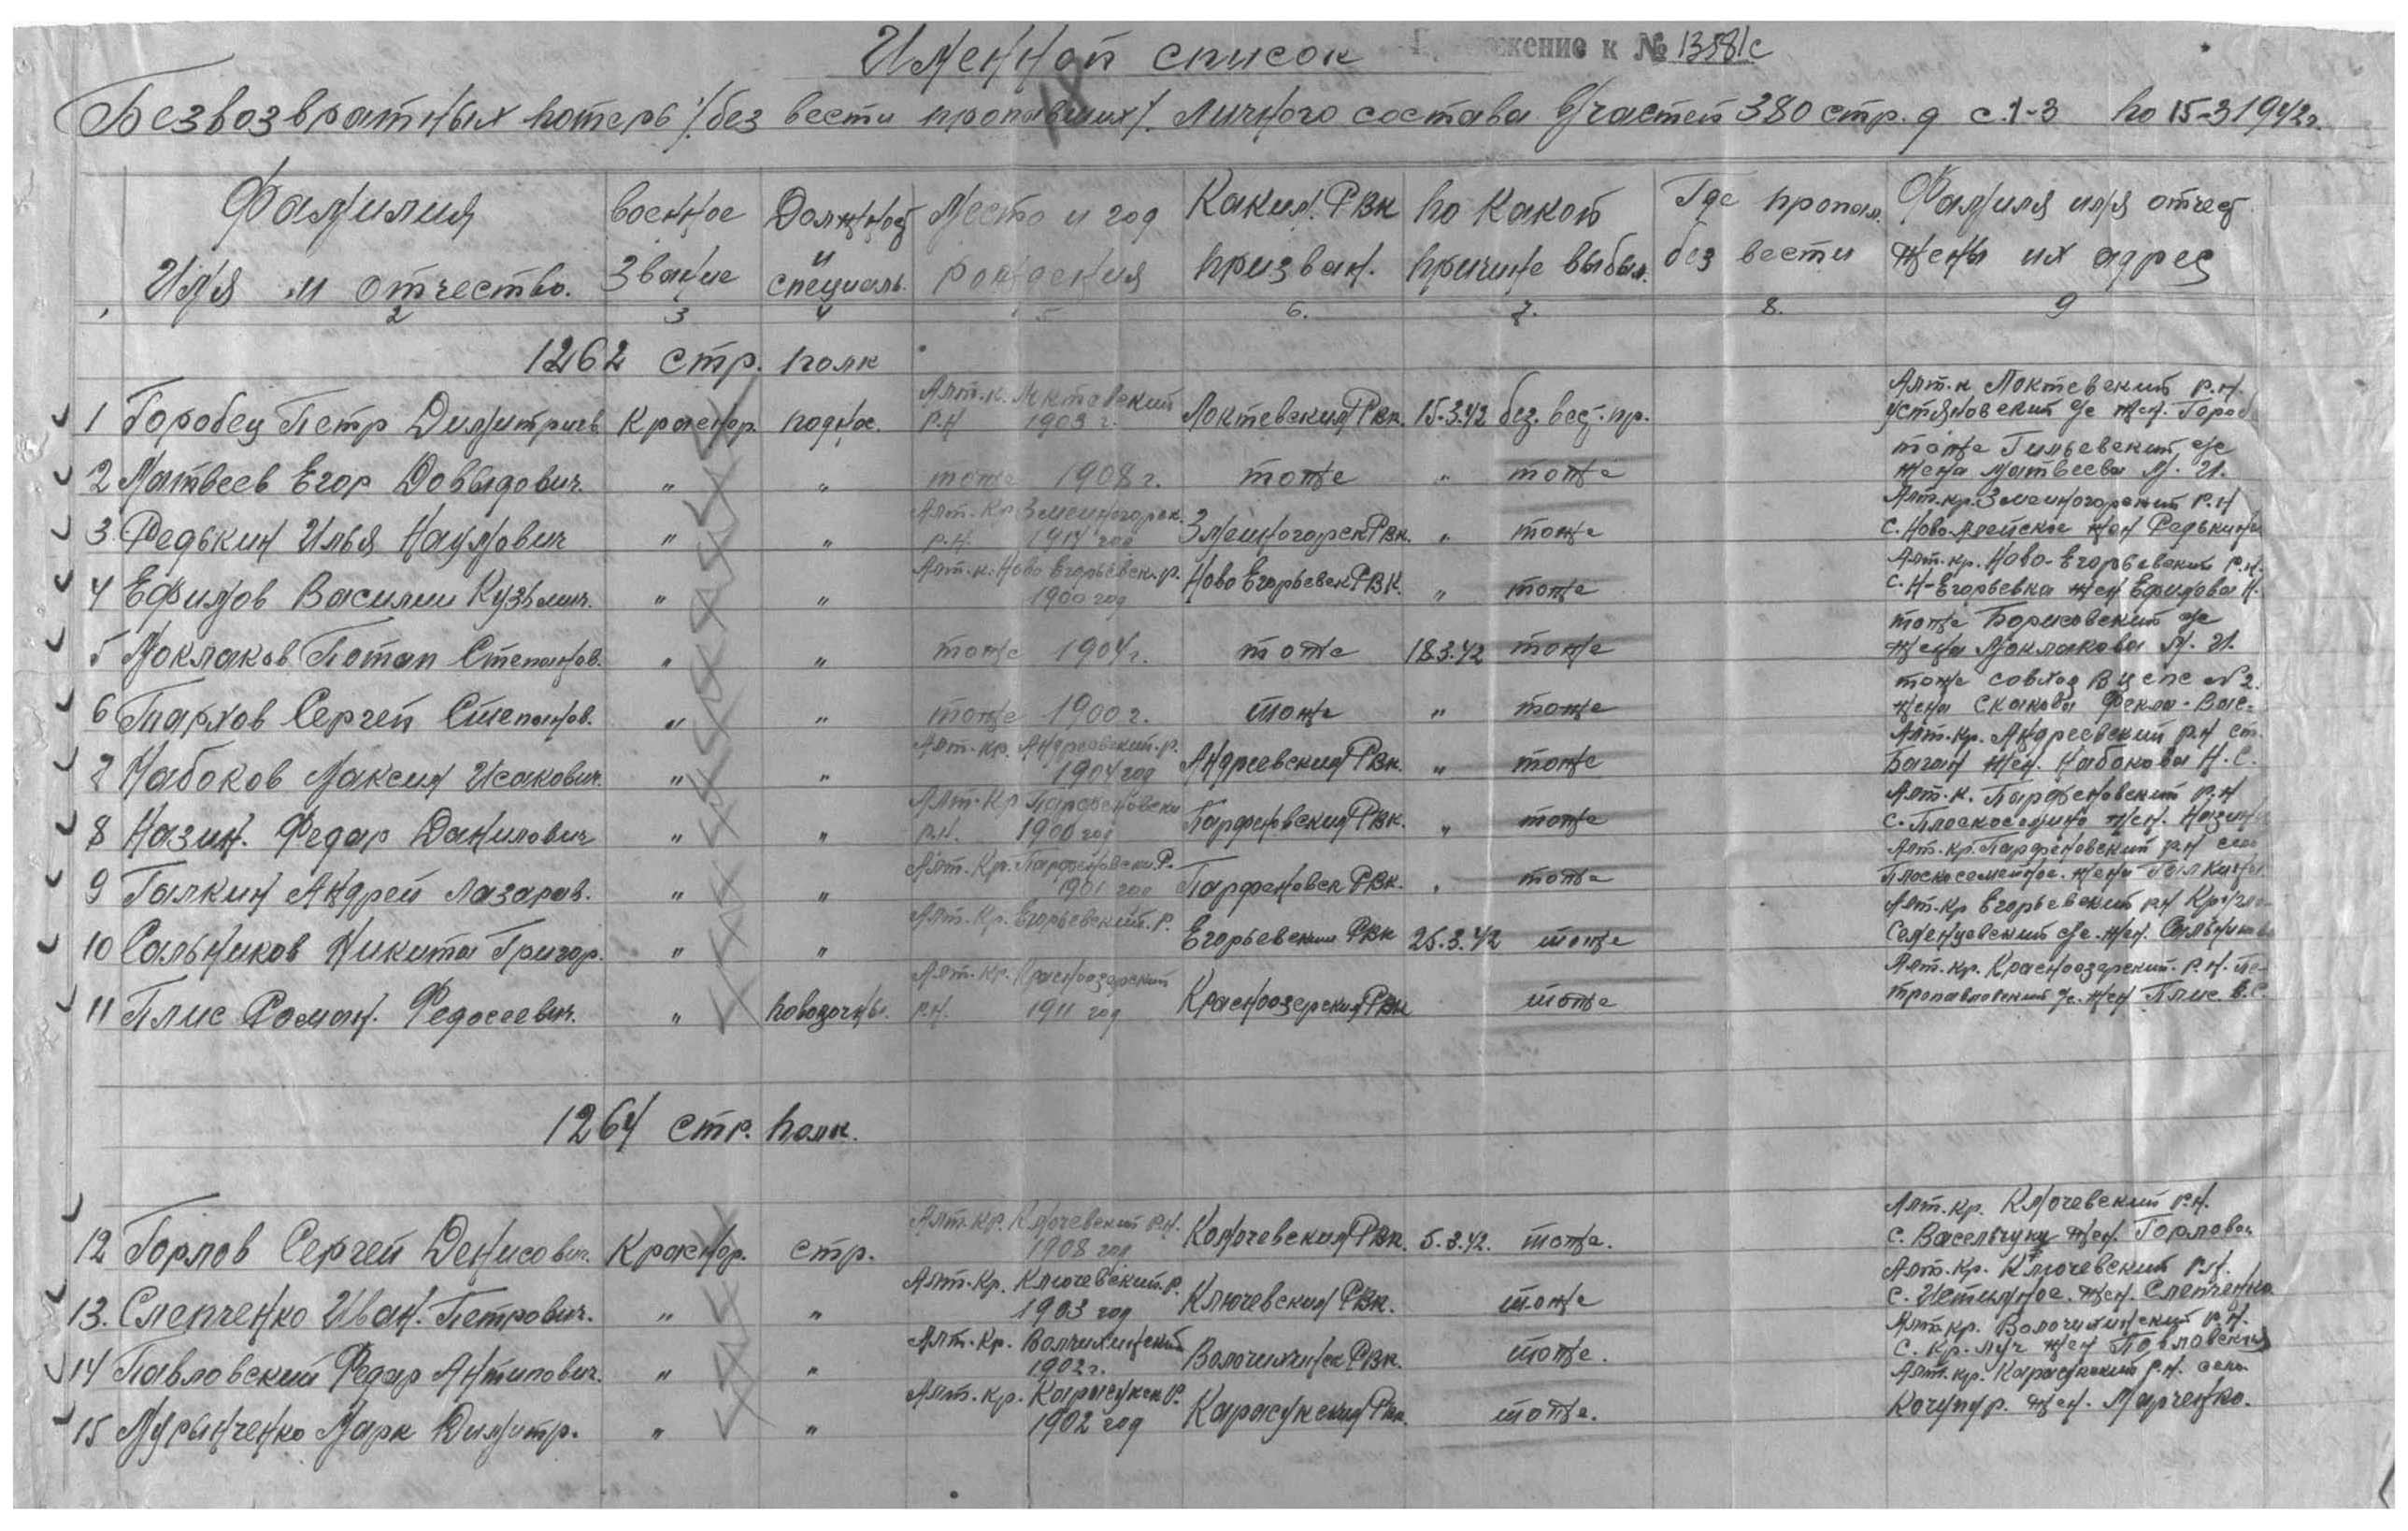 Именной список
жение к № 13581с
Безвозвратных потерь /без вести пропавших/ личного состава частей 380 стр. д с 1-3 по 15-3 1942г.
Фамилия Имя и отчество. военное звание Должность и специаль. Место и год рождения Каким РВК призван. по какой причине выбыл. Где пропал. без вести Фамиля имя отчес жены их адрес
2 3 4 5 6. 7. 8. 9
1262 стр. полк
Алт.к. Локтевский Алт.к Локтевский р.н.
1 Горобец Петр Димитрич Краснор. поднос. р.н 1903 г. Локтевским РВК. 15.3.42 без. вес. пр. Устяновский с/с жен. Гороб
тоже Гильевский с/с
2 Матвеев Егор Довыдович. " " тоже 1908 г. тоже " тоже жена Матвеева М. И.
Алт. Кр Змеиногорск. Алт.кр. Змеиногорский Р.Н
3 Редькин Илья Наумович " " р.н. 1914 год Змеиногорск РВК. " тоже с. Ново-Алейское жен Редькина
Алт.к. Ново Егорьевск.р. Алт.кр. Ново-Егорьевский р.н.
4 Ефимов Василии Кузьмич. " " 1900 год Ново Егорьевск РВК. " тоже с. Н-Егорьевка жен Ефимова Н.
тоже Борисовский с/с
5 Моклаков Потап Степанов. " " тоже 1904г. тоже 18.3.42 тоже жена Моклакова М. И.
тоже совхоз ВЦСПС №2.
6 Тархов Сергей Степанов. " " тоже 1900 г. тоже " тоже жена Скакова Фекла Вас.
Алт. кр. Андреевский.р. Алт.кр. Андреевский р.н ст.
7 Набоков Максим Исакович. " " 1904 год Андреевским РВК. " тоже Баган жен. Набокова Н. С.
Алт. Кр Парфеновски Алт.к. Парфеновский р.н
8 Назин. Федар Данилович " " р.н. 1900 год Парфиновским РВК. " тоже с. Плоскосемино жен. Назина
Алт. Кр. Парфеновски. Р. Алт.кр. Парфеновский р.н село
9 Галкин Андрей Лазарав. " " 1901 год Парфеновск РВК. " тоже Плоскосемейное. жена Галкина
Алт. Кр. Егорьевский. Р. Алт.кр Егорьевский р.н
10 Сальников Никита Григор. " " Егорьевским РВК 25.3.42 тоже с/с. жен. Сальникова
Алт. кр. Красноозерский Алт.кр. Красноозерский. Р.Н. Пе-
11 Плис Роман. Федосеевич. " повозочны. р.н. 1911 год Красноозерским РВК тоже тропавловский с/с. жен Плис В.С.
1264 стр. полк.
Алт.кр. Ключевский р.н. Алт.кр. Ключевский Р.Н.
12 Горлов Сергей Денисович. Краснор. стр. 1908 год Ключевским РВК. 5.3.42. тоже. с. Васельчуки жен. Горлова
Алт.Кр. Ключевский.Р. Алт.Кр. Ключевский Р.Н.
13. Слепченко Иван. Петрович. " " 1903 год Ключевским РВК. тоже с. Истимное. жен. Слепченко
Алт.Кр. Волчихинский Алт.кр. Волочихинский Р.Н.
14 Павловский Федар Антипович. " " 1902г. Волочихинск РВК. тоже. с. Кр.луч жен Павловская
Алт.кр. Карасукск.Р. Алт.кр. Карасукский Р.Н. село
15 Мурынченко Марк Димитр. " " 1902 год Карасукским РВК. тоже. жен. Марченко.